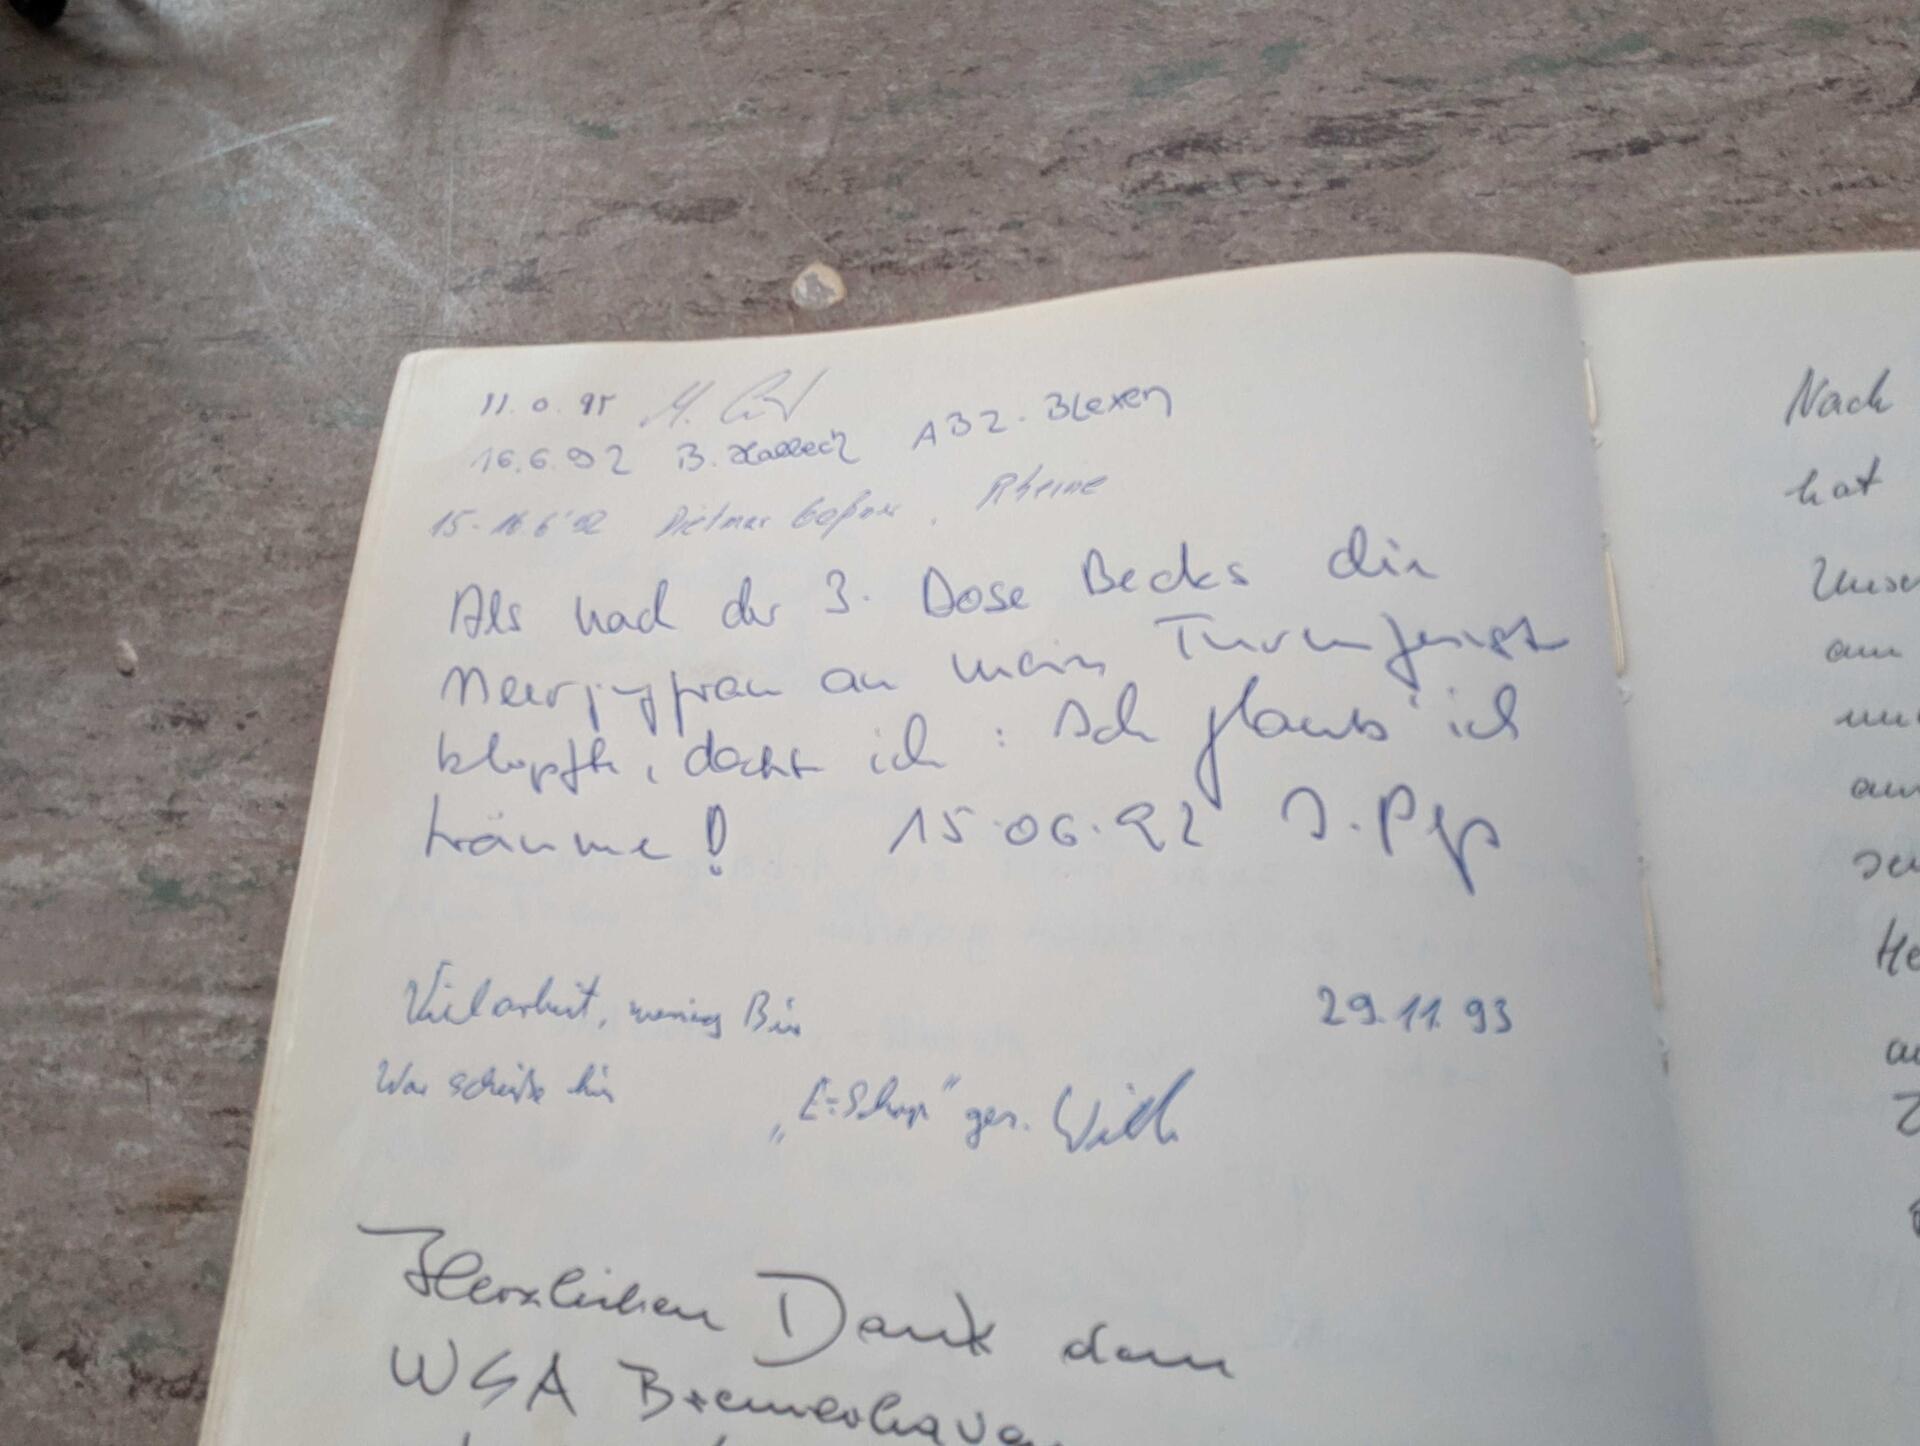 16.6.92 B. ABZ. Blexen
15.-16.6'92 Dietmar , Rheine
Als nach der 3. Dose Becks die
Meerjungfrau an mein Turmfenster
klopfte, dacht ich: Ich glaub' ich
träume! 15.06.92
Viel arbeit, wenig Bier 29.11.93
War scheiße hier
ges. Willi
Herzlichen Dank dem
WSA Bremerhaven
Nach
hat
am
Z